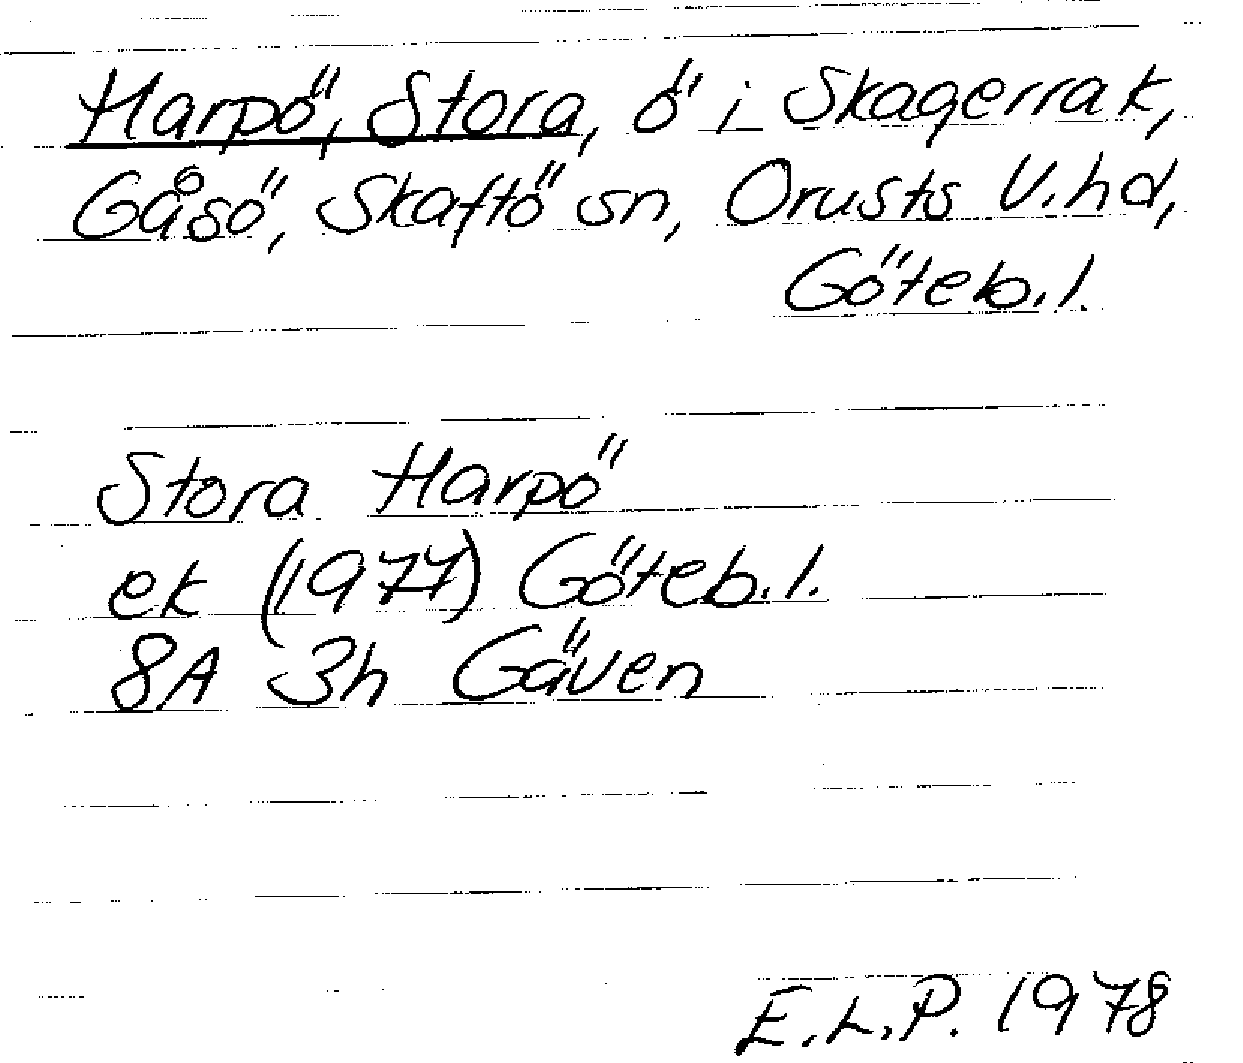 Harpö, Stora, ö i Skagerrak,
Gåsö, Skaftö sn, Orusts V.hd,
Göteb.l.
Stora Harpö
ek (1977) Göteb.l.
8A 3h Gäven
E.L.P. 1978